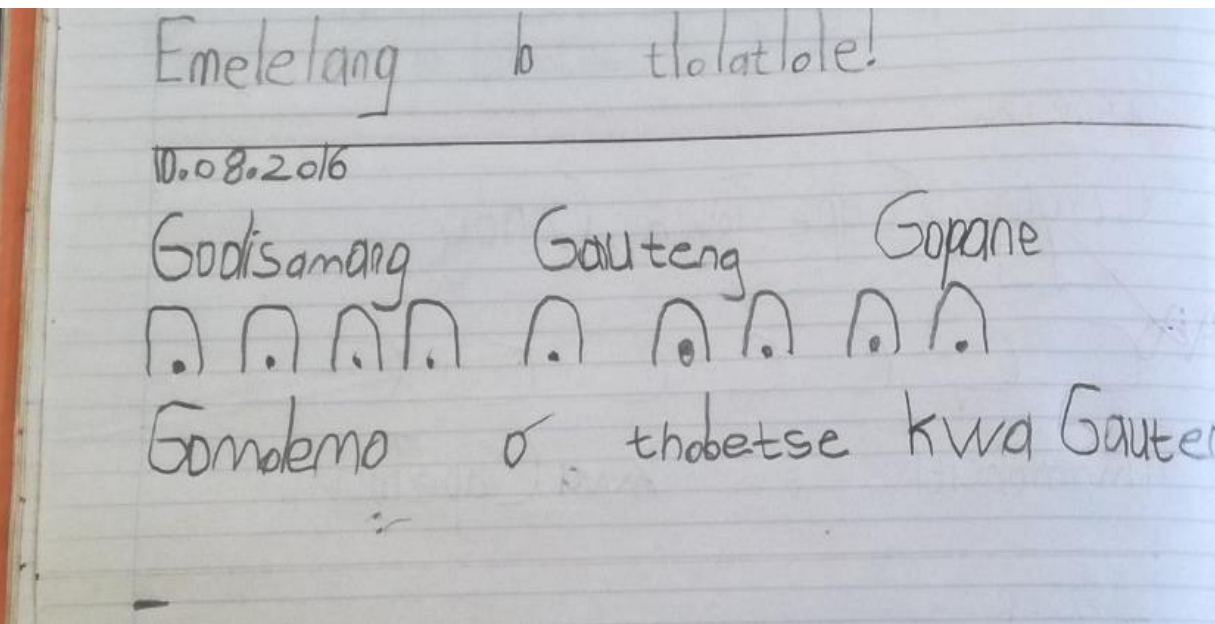 Emelelang lo tlolatlole!
10.08.2016
Godisamang Gauteng Gopane
Gomolemo o thobetse kwa Gauten